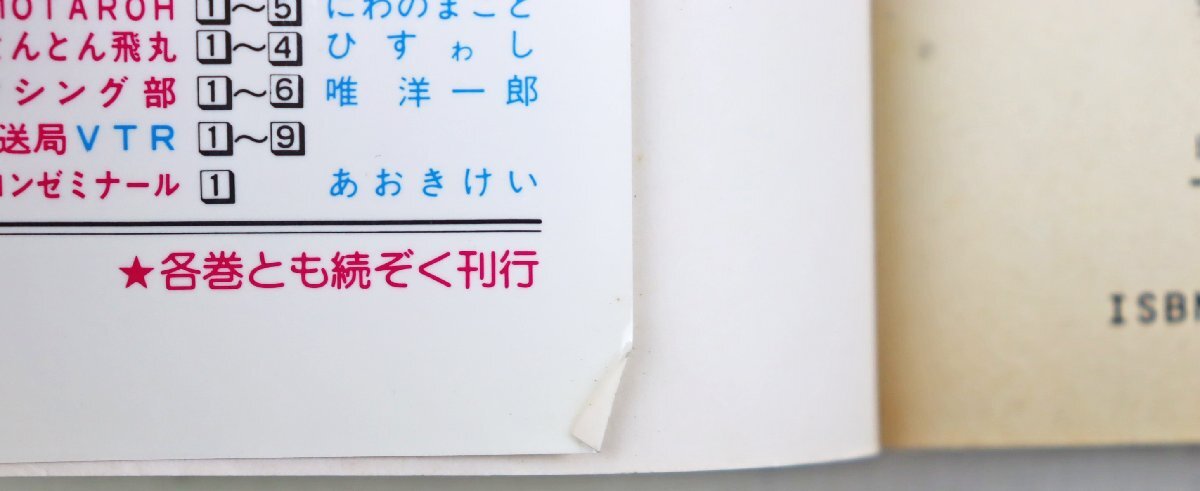 MOTAROH 1〜5 にわのまこと
とんとん飛丸 1〜4 ひすゎし
シング部 1〜6 唯洋一郎
送局VTR 1〜9
ンゼミナール 1 あおきけい
★各巻とも続ぞく刊行
ISBN